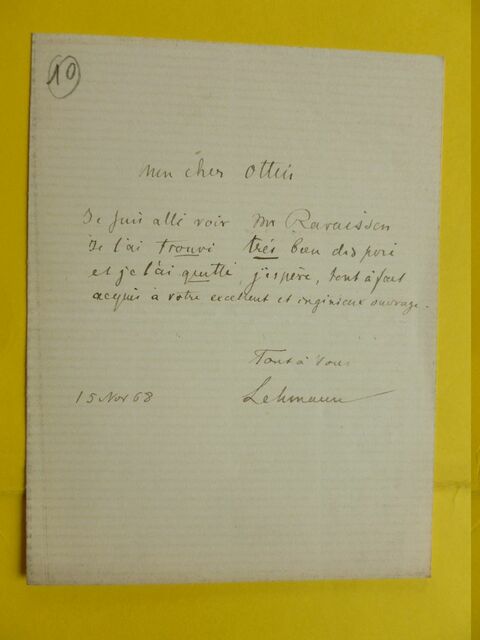 10
Mon cher Ottin
Je suis allé voir Mr Ravaisson
Je l'ai trouvé très bien disposé
et je l'ai quitté, j'espère, tout à fait
acquis à votre excellent et ingénieux ouvrage.
Tout à vous
15 Nov 68 Lehmann